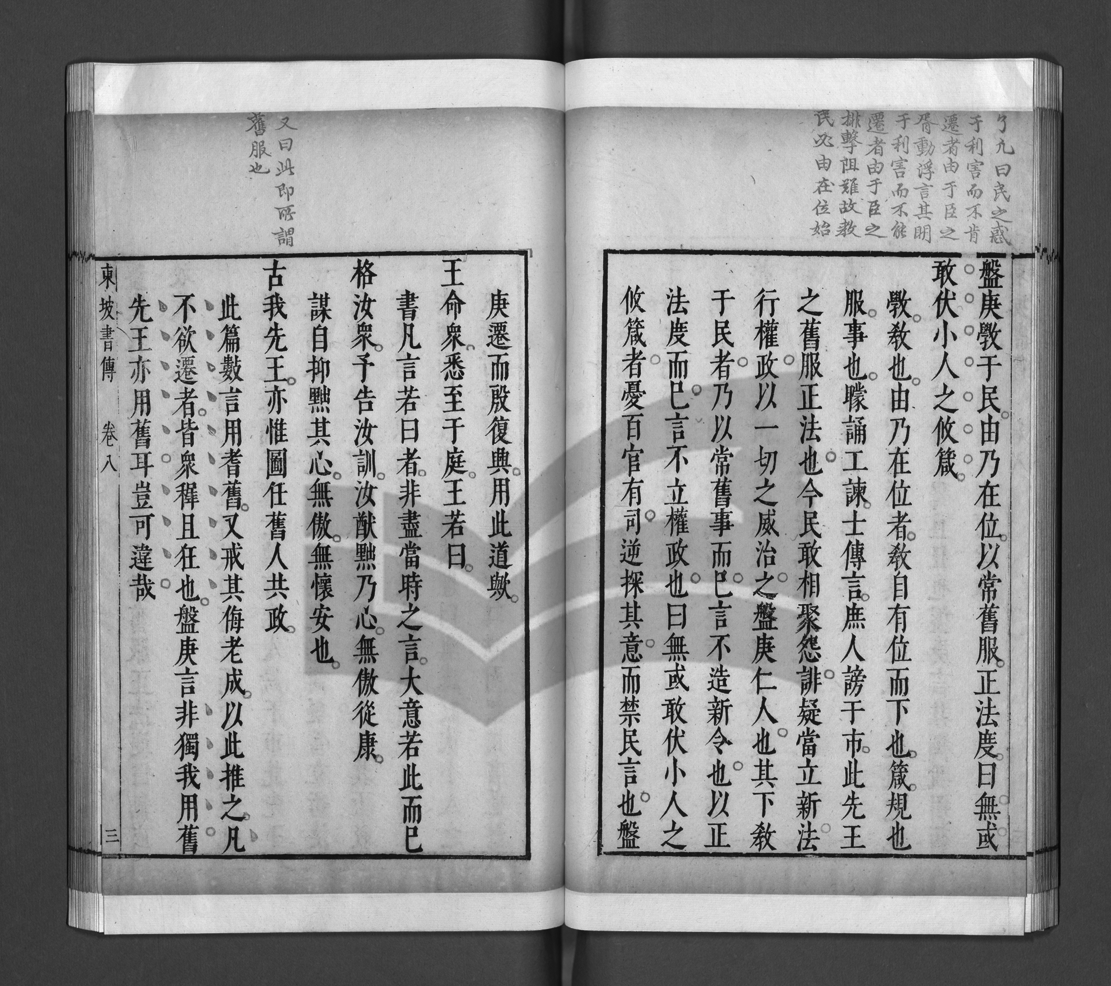 了凡曰民之惑
于利害而不肯
遷者由于臣之
胥動浮言其明
于利害而不能
遷者由于臣之
排擊阻難故教
民必由在位始
盤庚斆于民由乃在位以常舊服正法度曰無或
敢伏小人之攸箴
斆教也由乃在位者教自有位而下也箴規也
服事也矇誦工諫士傳言庶人謗于市此先王
之舊服正法也今民敢相聚怨誹疑當立新法
行權政以一切之威治之盤庚仁人也其下教
于民者乃以常舊事而已言不造新令也以正
法度而已言不立權政也曰無或敢伏小人之
攸箴者憂百官有司逆探其意而禁民言也盤
庚遷而殷復興用此道歟
王命衆悉至于庭王若曰
書凡言若曰者非盡當時之言大意若此而已
格汝衆予告汝訓汝猷黜乃心無傲從康
謀自抑黜其心無傲無懷安也
古我先王亦惟圖任舊人共政
又曰此即所謂
舊服也
此篇數言用耆舊又戒其侮老成以此推之凡
不欲遷者皆衆穉且狂也盤庚言非獨我用舊
先王亦用舊耳豈可違哉
東坡書傳 卷八 三